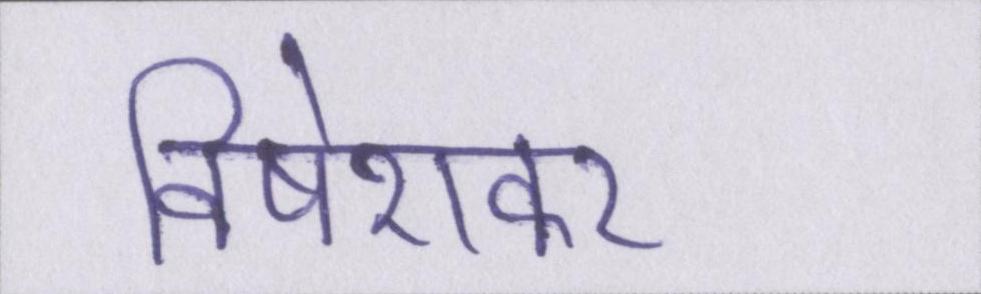 विषेशकर